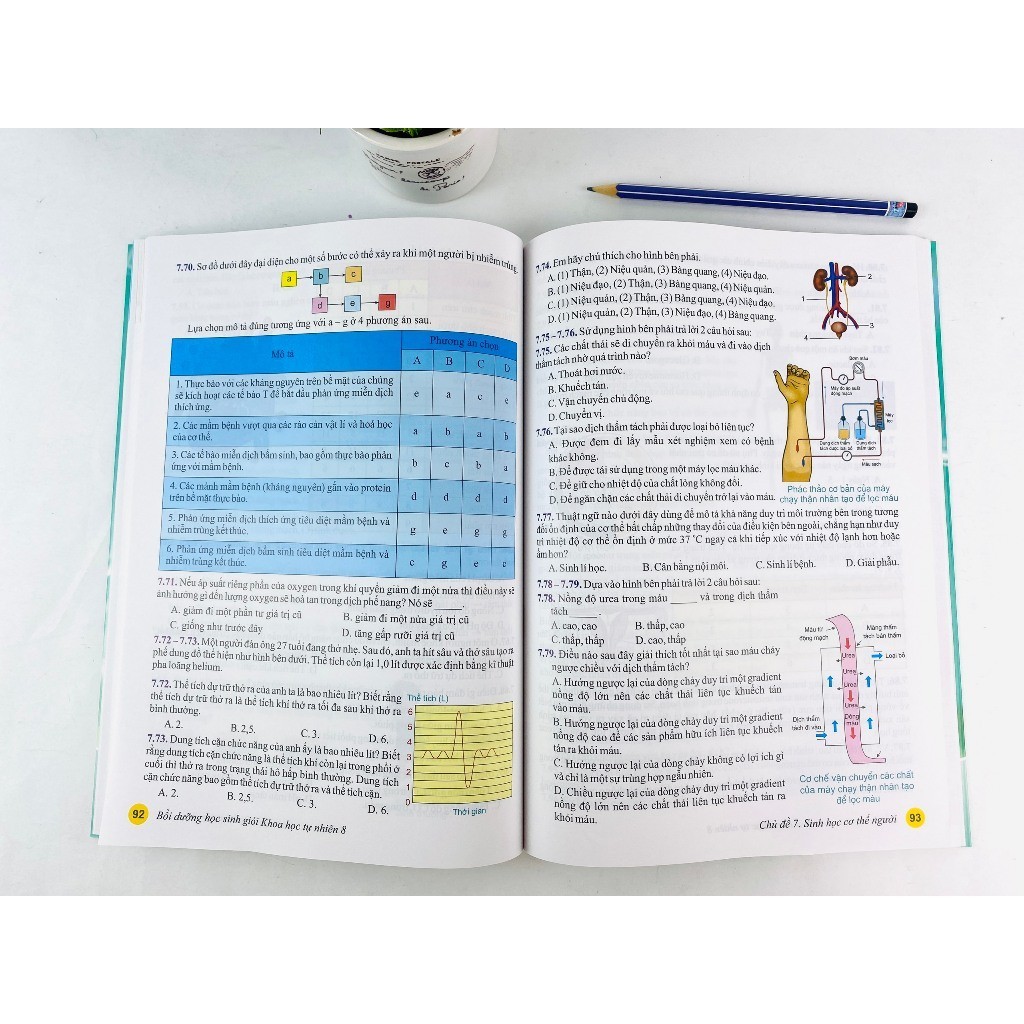 7.70. Sơ đồ dưới đây đại diện cho một số bước có thể xảy ra khi một người bị nhiễm trùng.
a b c
d e g
Lựa chọn mô tả đúng tương ứng với a – g ở 4 phương án sau.
Mô tả
Phương án chọn
A B C D
1. Thực bào với các kháng nguyên trên bề mặt của chúng
sẽ kích hoạt các tế bào T để bắt đầu phản ứng miễn dịch
thích ứng.
e a c e
2. Các mầm bệnh vượt qua các rào cản vật lí và hoá học
của cơ thể.
a b a b
3. Các tế bào miễn dịch bẩm sinh, bao gồm thực bào phản
ứng với mầm bệnh.
b c b a
4. Các mảnh mầm bệnh (kháng nguyên) gắn vào protein
trên bề mặt thực bào.
d d d d
5. Phản ứng miễn dịch thích ứng tiêu diệt mầm bệnh và
nhiễm trùng kết thúc.
g e g g
6. Phản ứng miễn dịch bẩm sinh tiêu diệt mầm bệnh và
nhiễm trùng kết thúc.
c g e c
7.71. Nếu áp suất riêng phần của oxygen trong khí quyển giảm đi một nửa thì điều này sẽ
ảnh hưởng gì đến lượng oxygen sẽ hoà tan trong dịch phế nang? Nó sẽ _____.
A. giảm đi một phần tư giá trị cũ B. giảm đi một nửa giá trị cũ
C. giống như trước đây D. tăng gấp rưỡi giá trị cũ
7.72 – 7.73. Một người đàn ông 27 tuổi đang thở nhẹ. Sau đó, anh ta hít sâu và thở sâu tạo ra
phế dung đồ thể hiện như hình bên dưới. Thể tích còn lại 1,0 lít được xác định bằng kĩ thuật
pha loãng helium.
7.72. Thể tích dự trữ thở ra của anh ta là bao nhiêu lít? Biết rằng
thể tích dự trữ thở ra là thể tích khí thở ra tối đa sau khi thở ra
bình thường.
A. 2. B. 2,5. C. 3. D. 6.
7.73. Dung tích cặn chức năng của anh ấy là bao nhiêu lít? Biết
rằng dung tích cặn chức năng là thể tích khí còn lại trong phổi ở
cuối thì thở ra trong trạng thái hô hấp bình thường. Dung tích
cặn chức năng bao gồm thể tích dự trữ thở ra và thể tích cặn.
A. 2. B. 2,5. C. 3. D. 6.
Thể tích (L)
6
5
4
3
2
1
0
Thời gian
92 Bồi dưỡng học sinh giỏi Khoa học tự nhiên 8
7.74. Em hãy chú thích cho hình bên phải.
A. (1) Thận, (2) Niệu quản, (3) Bàng quang, (4) Niệu đạo.
B. (1) Niệu đạo, (2) Thận, (3) Bàng quang, (4) Niệu quản.
C. (1) Niệu quản, (2) Thận, (3) Bàng quang, (4) Niệu đạo.
D. (1) Niệu quản, (2) Thận, (3) Niệu đạo, (4) Bàng quang.
1
2
3
4
7.75 – 7.76. Sử dụng hình bên phải trả lời 2 câu hỏi sau:
7.75. Các chất thải sẽ di chuyển ra khỏi máu và đi vào dịch
thẩm tách nhờ quá trình nào?
A. Thoát hơi nước.
B. Khuếch tán.
C. Vận chuyển chủ động.
D. Chuyển vị.
7.76. Tại sao dịch thẩm tách phải được loại bỏ liên tục?
A. Được đem đi lấy mẫu xét nghiệm xem có bệnh
khác không.
B. Để được tái sử dụng trong một máy lọc máu khác.
C. Để giữ cho nhiệt độ của chất lỏng không đổi.
D. Để ngăn chặn các chất thải di chuyển trở lại vào máu.
Bơm máu
Máy đo áp suất
động mạch
Máy
lọc
Dung dịch thẩm
tách được loại bỏ
Dung dịch
thẩm tách
Máu sạch
Phác thảo cơ bản của máy
chạy thận nhân tạo để lọc máu
7.77. Thuật ngữ nào dưới đây dùng để mô tả khả năng duy trì môi trường bên trong tương
đối ổn định của cơ thể bất chấp những thay đổi của điều kiện bên ngoài, chẳng hạn như duy
trì nhiệt độ cơ thể ổn định ở mức 37 °C ngay cả khi tiếp xúc với nhiệt độ lạnh hơn hoặc
ấm hơn?
A. Sinh lí học. B. Cân bằng nội môi. C. Sinh lí bệnh. D. Giải phẫu.
7.78 – 7.79. Dựa vào hình bên phải trả lời 2 câu hỏi sau:
7.78. Nồng độ urea trong máu _____ và trong dịch thẩm
tách _____.
A. cao, cao B. thấp, cao
C. thấp, thấp D. cao, thấp
7.79. Điều nào sau đây giải thích tốt nhất tại sao máu chảy
ngược chiều với dịch thẩm tách?
A. Hướng ngược lại của dòng chảy duy trì một gradient
nồng độ lớn nên các chất thải liên tục khuếch tán
vào máu.
B. Hướng ngược lại của dòng chảy duy trì một gradient
nồng độ cao để các sản phẩm hữu ích liên tục khuếch
tán ra khỏi máu.
C. Hướng ngược lại của dòng chảy không có lợi ích gì
và chỉ là một sự trùng hợp ngẫu nhiên.
D. Chiều ngược lại của dòng chảy duy trì một gradient
nồng độ lớn nên các chất thải liên tục khuếch tán ra
khỏi máu.
Máu từ
động mạch
Màng thẩm
tách bán thấm
Loại bỏ
Urea
Urea
Urea
Urea
Dòng
máu
Dịch thẩm
tách đi vào
Cơ chế vận chuyển các chất
của máy chạy thận nhân tạo
để lọc máu
Chủ đề 7. Sinh học cơ thể người 93